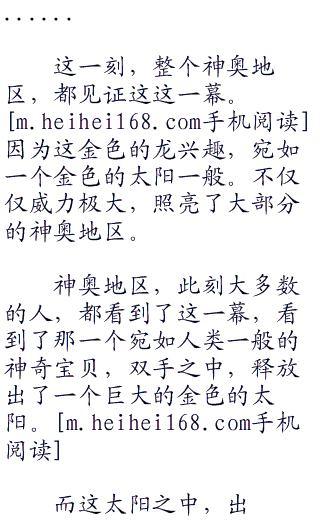 ······
这一刻，整个神奥地
区，都见证这这一幕。
[m.heihei168.com手机阅读]
因为这金色的龙兴趣，宛如
一个金色的太阳一般。不仅
仅威力极大，照亮了大部分
的神奥地区。
神奥地区，此刻大多数
的人，都看到了这一幕，看
到了那一个宛如人类一般的
神奇宝贝，双手之中，释放
出了一个巨大的金色的太
阳。[m.heihei168.com手机
阅读]
而这太阳之中，出